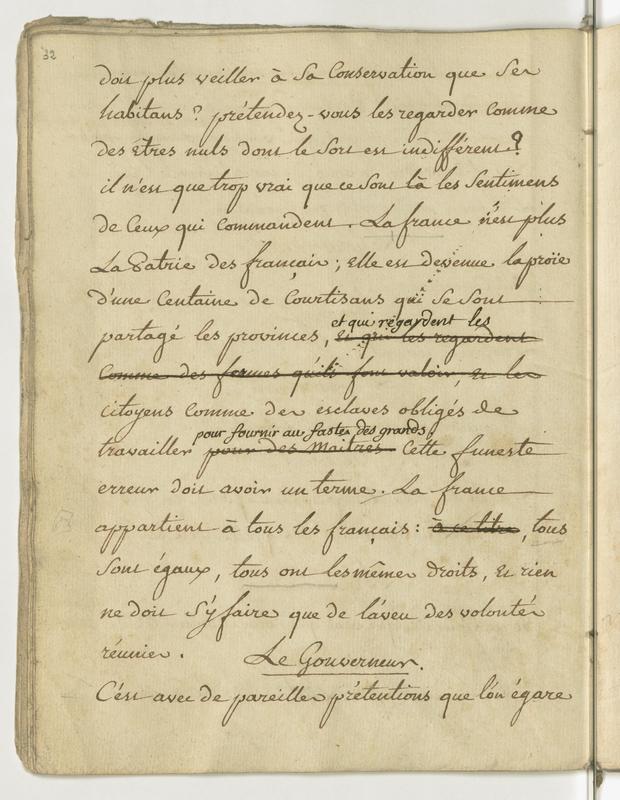 32
doit plus veiller à sa Conservation que ses
habitans ? prétendez-vous les regarder Comme
des Êtres nuls dont le Sort est indifférent ?
il n'est que trop vrai que ce Sont là les Sentimens
de Ceux qui Commandent. La france n'est plus
La Patrie des français ; Elle est devenue la proie
d'une Centaine de Courtisans qui Se Sont
et qui régardent les
partagé les provinces, et qui les regardent
Comme des fermes qu'ils font valoir, et les
citoyens Comme des esclaves obligés de
pour fournir au faste des grands.
travailler pour des Maitres. Cette funeste
erreur doit avoir un terme. La france
appartient à tous les français : à ce titre, tous
Sont égaux, tous ont les mêmes droits, Et rien
ne doit S'y faire que de l'aveu des volontés
réunies.
Le Gouverneur.
C'est avec de pareilles prétentions que l'on égare